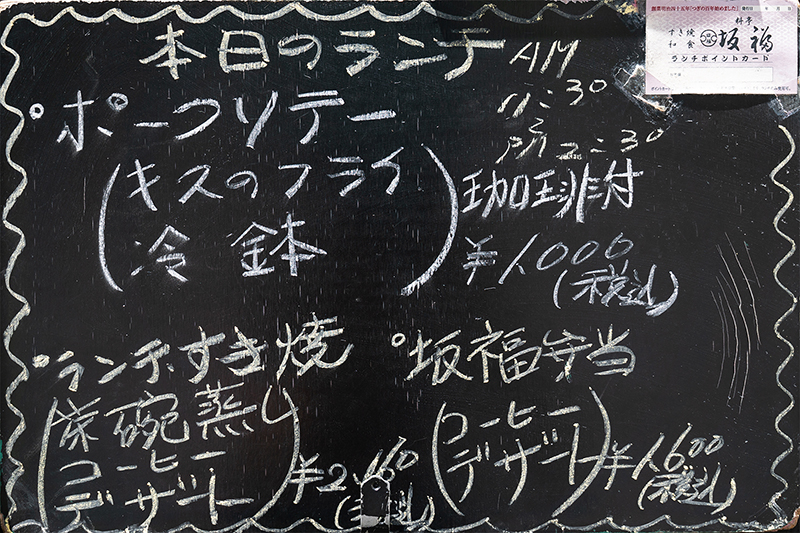 本日のランチ
AM
11:30
PM 2:30
ポークソテー
(キスのフライ
冷鉢)
珈琲付
¥1,000
(税込)
ランチすき焼
(茶碗蒸し
コーヒー
デザート)
¥2,160
坂福弁当
(コーヒー
デザート)
¥1,600
(税込)
創業明治四十五年「つぎの百年始めました」
料亭
すき焼
和食
坂福
ランチポイントカード